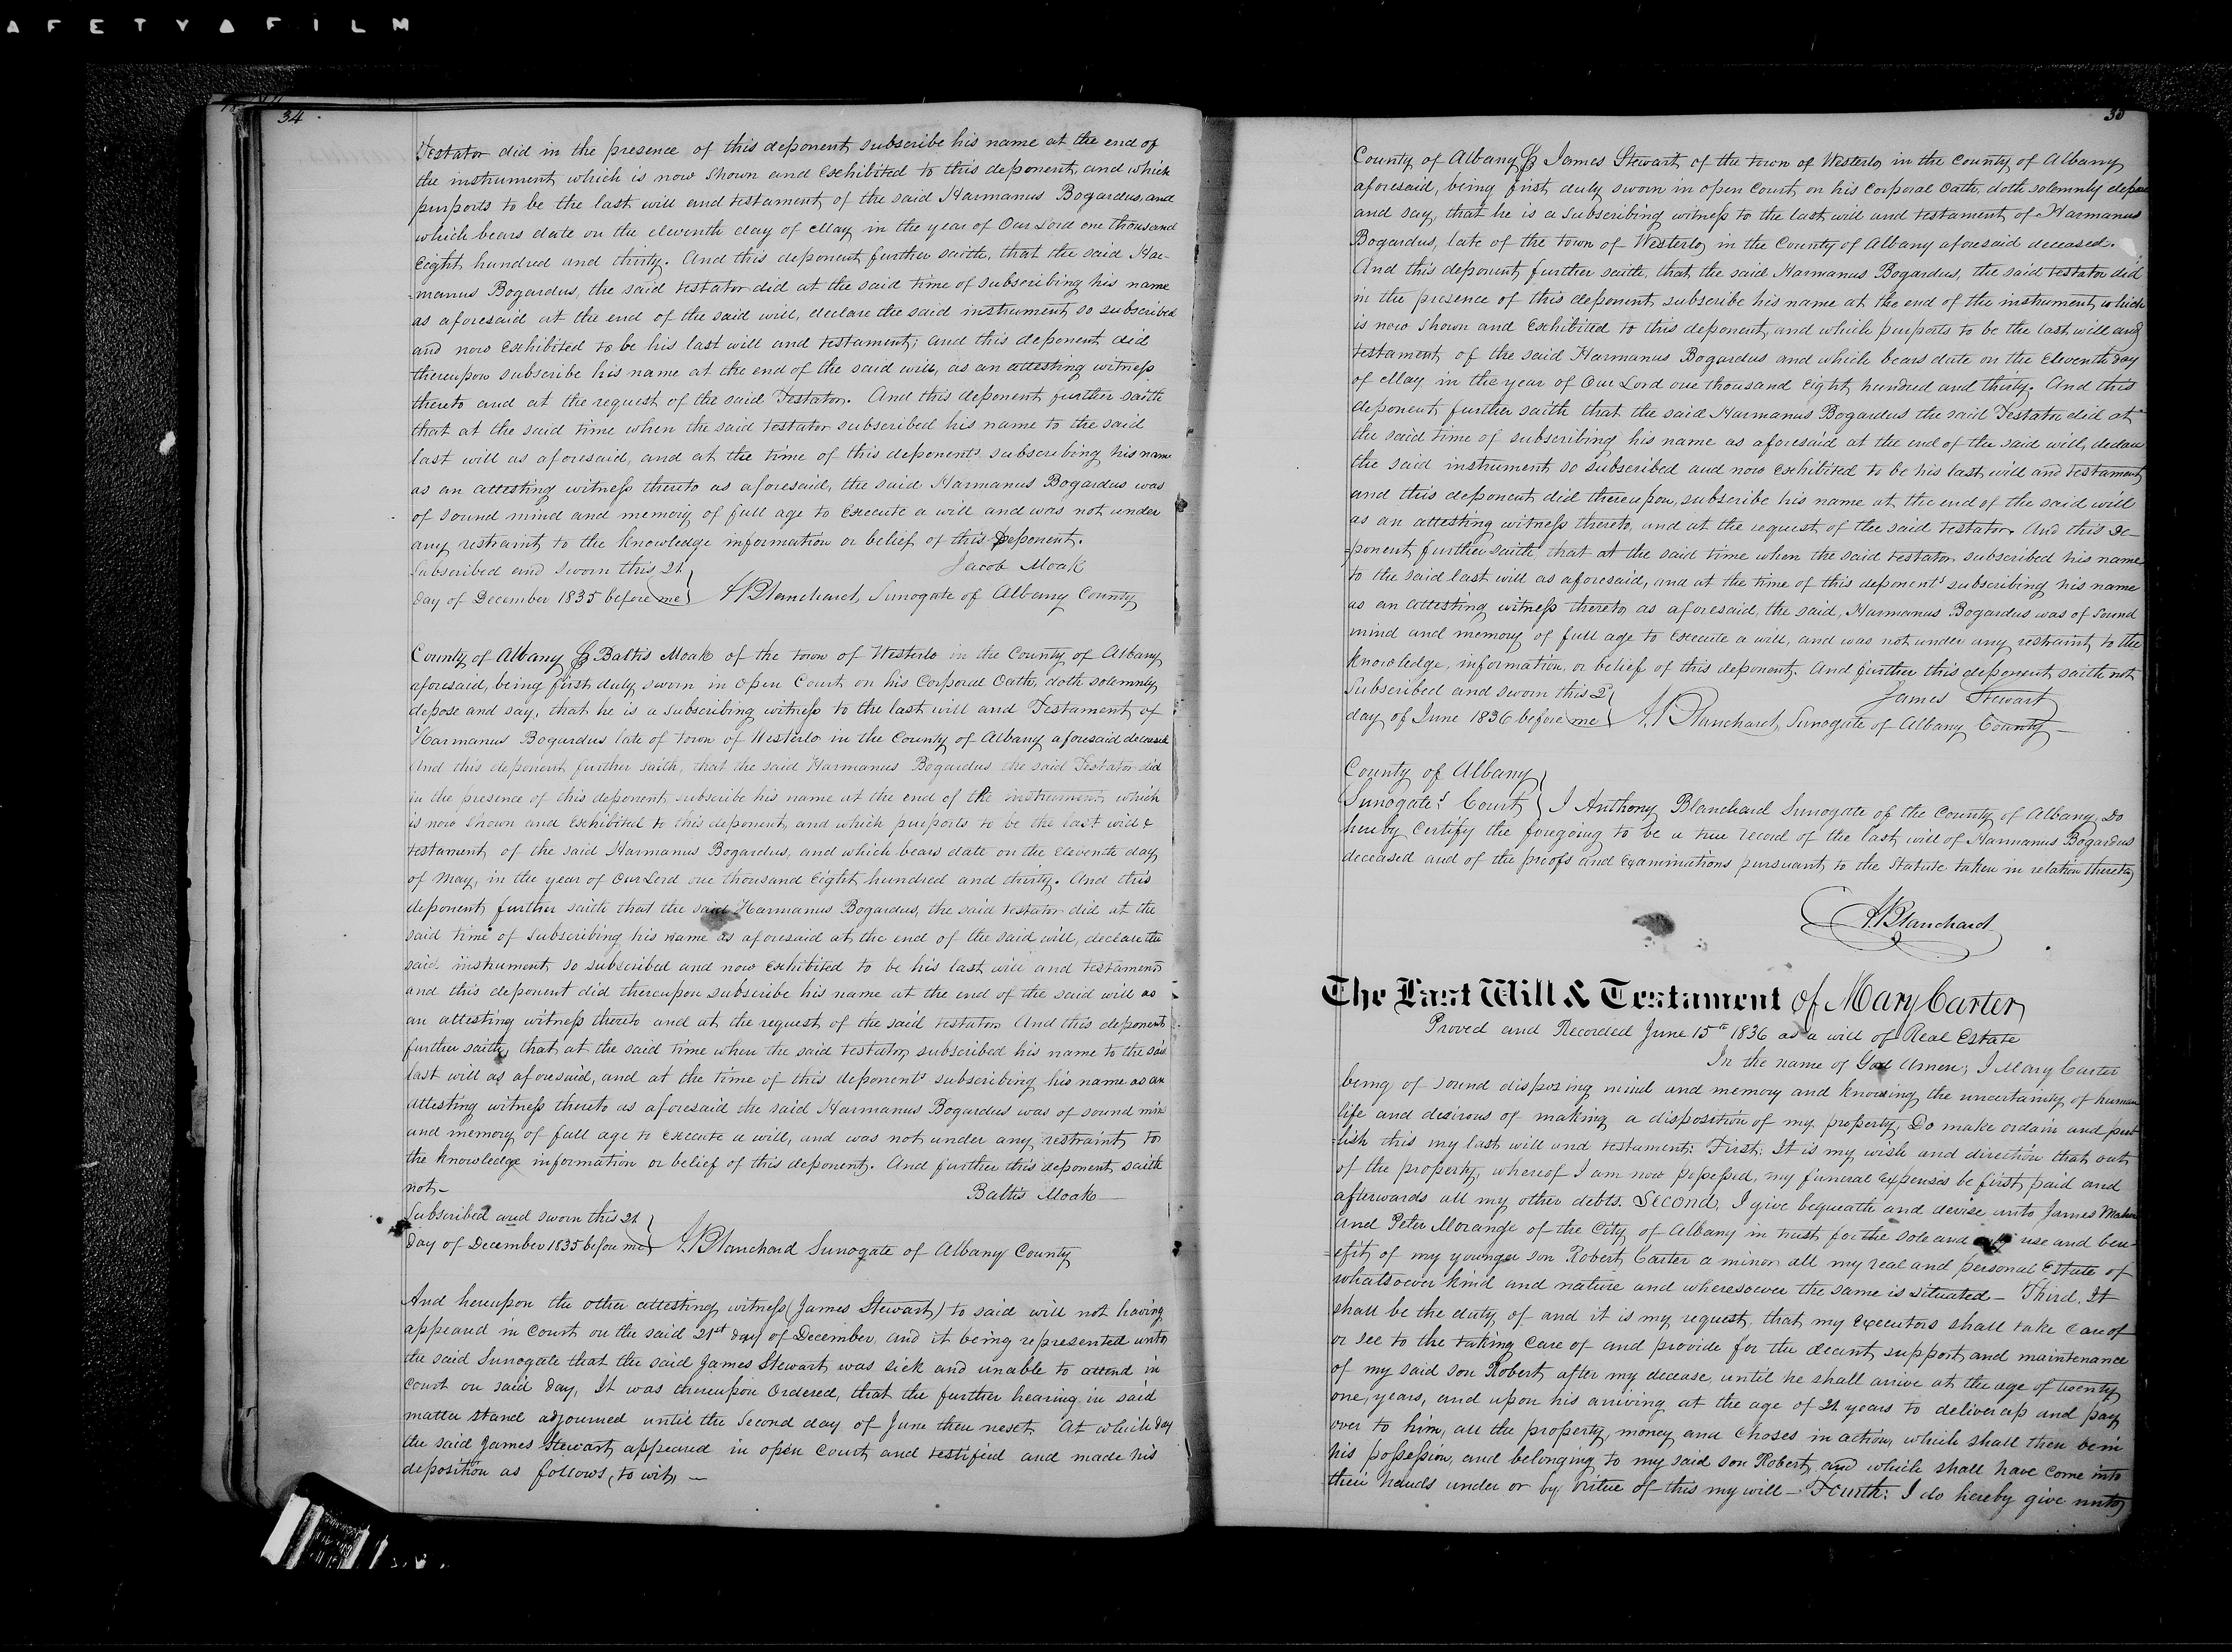 AFETY FILM
34
Testator did in the presence of this deponent subscribe his name at the end of
the instrument which is now shown and exhibited to this deponent, and which
purports to be the last will and testament of the said Harmanus Bogardus, and
which bears date on the eleventh day of May in the year of Our Lord one thousand
Eight hundred and thirty. And this deponent further saith, that the said Har-
-manus Bogardus, the said testator did at the said time of subscribing his name
as aforesaid at the end of the said will, declare the said instrument so subscribed
and now exhibited to be his last will and testament; and this deponent did
thereupon subscribe his name at the end of the said will, as an attesting witness
thereto and at the request of the said Testator. And this deponent further saith
that at the said time when the said testator subscribed his name to the said
last will as aforesaid, and at the time of this deponents subscribing his name
as an attesting witness thereto as aforesaid, the said Harmanus Bogardus was
of sound mind and memory of full age to execute a will and was not under
any restraint to the knowledge information or belief of this deponent.
Subscribed and sworn this 21 } Jacob Moak
day of December 1835 before me } A Blanchard, Surrogate of Albany County
County of Albany ss Baltis Moak of the town of Westerlo in the County of Albany
aforesaid, being first duly sworn in open Court on his Corporal Oath, doth solemnly
depose and say, that he is a subscribing witness to the last will and Testament of
Harmanus Bogardus late of town of Westerlo in the County of Albany aforesaid deceased
And this deponent further saith, that the said Harmanus Bogardus the said Testator did
in the presence of this deponent subscribe his name at the end of the instrument which
is now shown and exhibited to this deponent, and which purports to be the last will &
testament of the said Harmanus Bogardus, and which bears date on the eleventh day
of May, in the year of Our Lord one thousand Eight hundred and thirty. And this
deponent further saith that the said Harmanus Bogardus, the said testator did at the
said time of subscribing his name as aforesaid at the end of the said will, declare the
said instrument so subscribed and now exhibited to be his last will and testament
and this deponent did thereupon subscribe his name at the end of the said will as
an attesting witness thereto and at the request of the said testator. And this deponent
further saith, that at the said time when the said testator subscribed his name to the said
last will as aforesaid, and at the time of this deponents subscribing his name as an
attesting witness thereto as aforesaid the said Harmanus Bogardus was of sound mind
and memory of full age to execute a will, and was not under any restraint to
the knowledge information or belief of this deponent. And further this deponent saith
not- Baltis Moak
Subscribed and sworn this 21 }
day of December 1835 before me } A. Blanchard Surrogate of Albany County
And hereupon the other attesting witness (James Stewart) to said will not having
appeared in Court on the said 21st day of December, and it being represented unto
the said Surrogate that the said James Stewart was sick and unable to attend in
Court on said day, It was thereupon Ordered, that the further hearing in said
matter stand adjourned until the Second day of June then next At which day
the said James Stewart appeared in open Court and testified and made his
deposition as follows, to wit, —
35
County of Albany ss James Stewart of the town of Westerlo in the County of Albany
aforesaid, being first duly sworn in open Court on his corporal Oath, doth solemnly depose
and say, that he is a subscribing witness to the last will and testament of Harmanus
Bogardus, late of the town of Westerlo in the County of Albany aforesaid deceased.
And this deponent further saith, that the said Harmanus Bogardus, the said testator did
in the presence of this deponent subscribe his name at the end of the instrument which
is now shown and exhibited to this deponent, and which purports to be the last will and
testament of the said Harmanus Bogardus and which bears date on the Eleventh day
of May in the year of Our Lord one thousand Eight hundred and thirty. And this
deponent further saith that the said Harmanus Bogardus the said Testator did at
the said time of subscribing his name as aforesaid at the end of the said will, declare
the said instrument so subscribed and now exhibited to be his last will and testament
and this deponent did thereupon, subscribe his name at the end of the said will
as an attesting witness thereto, and at the request of the said testator. And this de-
-ponent further saith that at the said time when the said testator subscribed his name
to the said last will as aforesaid, and at the time of this deponents subscribing his name
as an attesting witness thereto as aforesaid, the said, Harmanus Bogardus was of sound
mind and memory of full age to execute a will, and was not under any restraint to the
knowledge, information, or belief of this deponent. And further this deponent saith not
Subscribed and sworn this 2 } James Stewart
day of June 1836 before me } A. Blanchard, Surrogate of Albany County—
County of Albany }
Surrogates Court } I Anthony Blanchard Surrogate of the County of Albany, Do
hereby certify the foregoing to be a true record of the last will of Harmanus Bogardus
deceased and of the proofs and examinations pursuant to the Statute taken in relation thereto
A. Blanchard
The Last Will & Testament of Mary Carter
Proved and Recorded June 15th 1836 as a will of Real Estate
In the name of God Amen; I Mary Carter
being of sound disposing mind and memory and knowing the uncertainty of human
life and desirous of making a disposition of my property, Do make ordain and pub-
-lish this my last will and testament: First: It is my wish and direction that out
of the property, whereof I am now possessed, my funeral expenses be first paid and
afterwards all my other debts. Second, I give bequeath and devise unto James Maher
and Peter Morange of the City of Albany in trust for the sole and only use and ben-
=efit of my younger son Robert Carter a minor all my real and personal Estate of
whatsoever kind and nature and wheresoever the same is situated— Third. It
shall be the duty of and it is my request, that my Executors shall take care of
or see to the taking care of and provide for the decent support and maintenance
of my said son Robert after my decease, until he shall arrive at the age of twenty
one, years, and upon his arriving at the age of 21 years to deliver up and pay
over to him, all the property, money and choses in action, which shall then be in
his possession, and belonging to my said son Robert, and which shall have come into
their hands under or by virtue of this my will— Fourth: I do hereby give unto